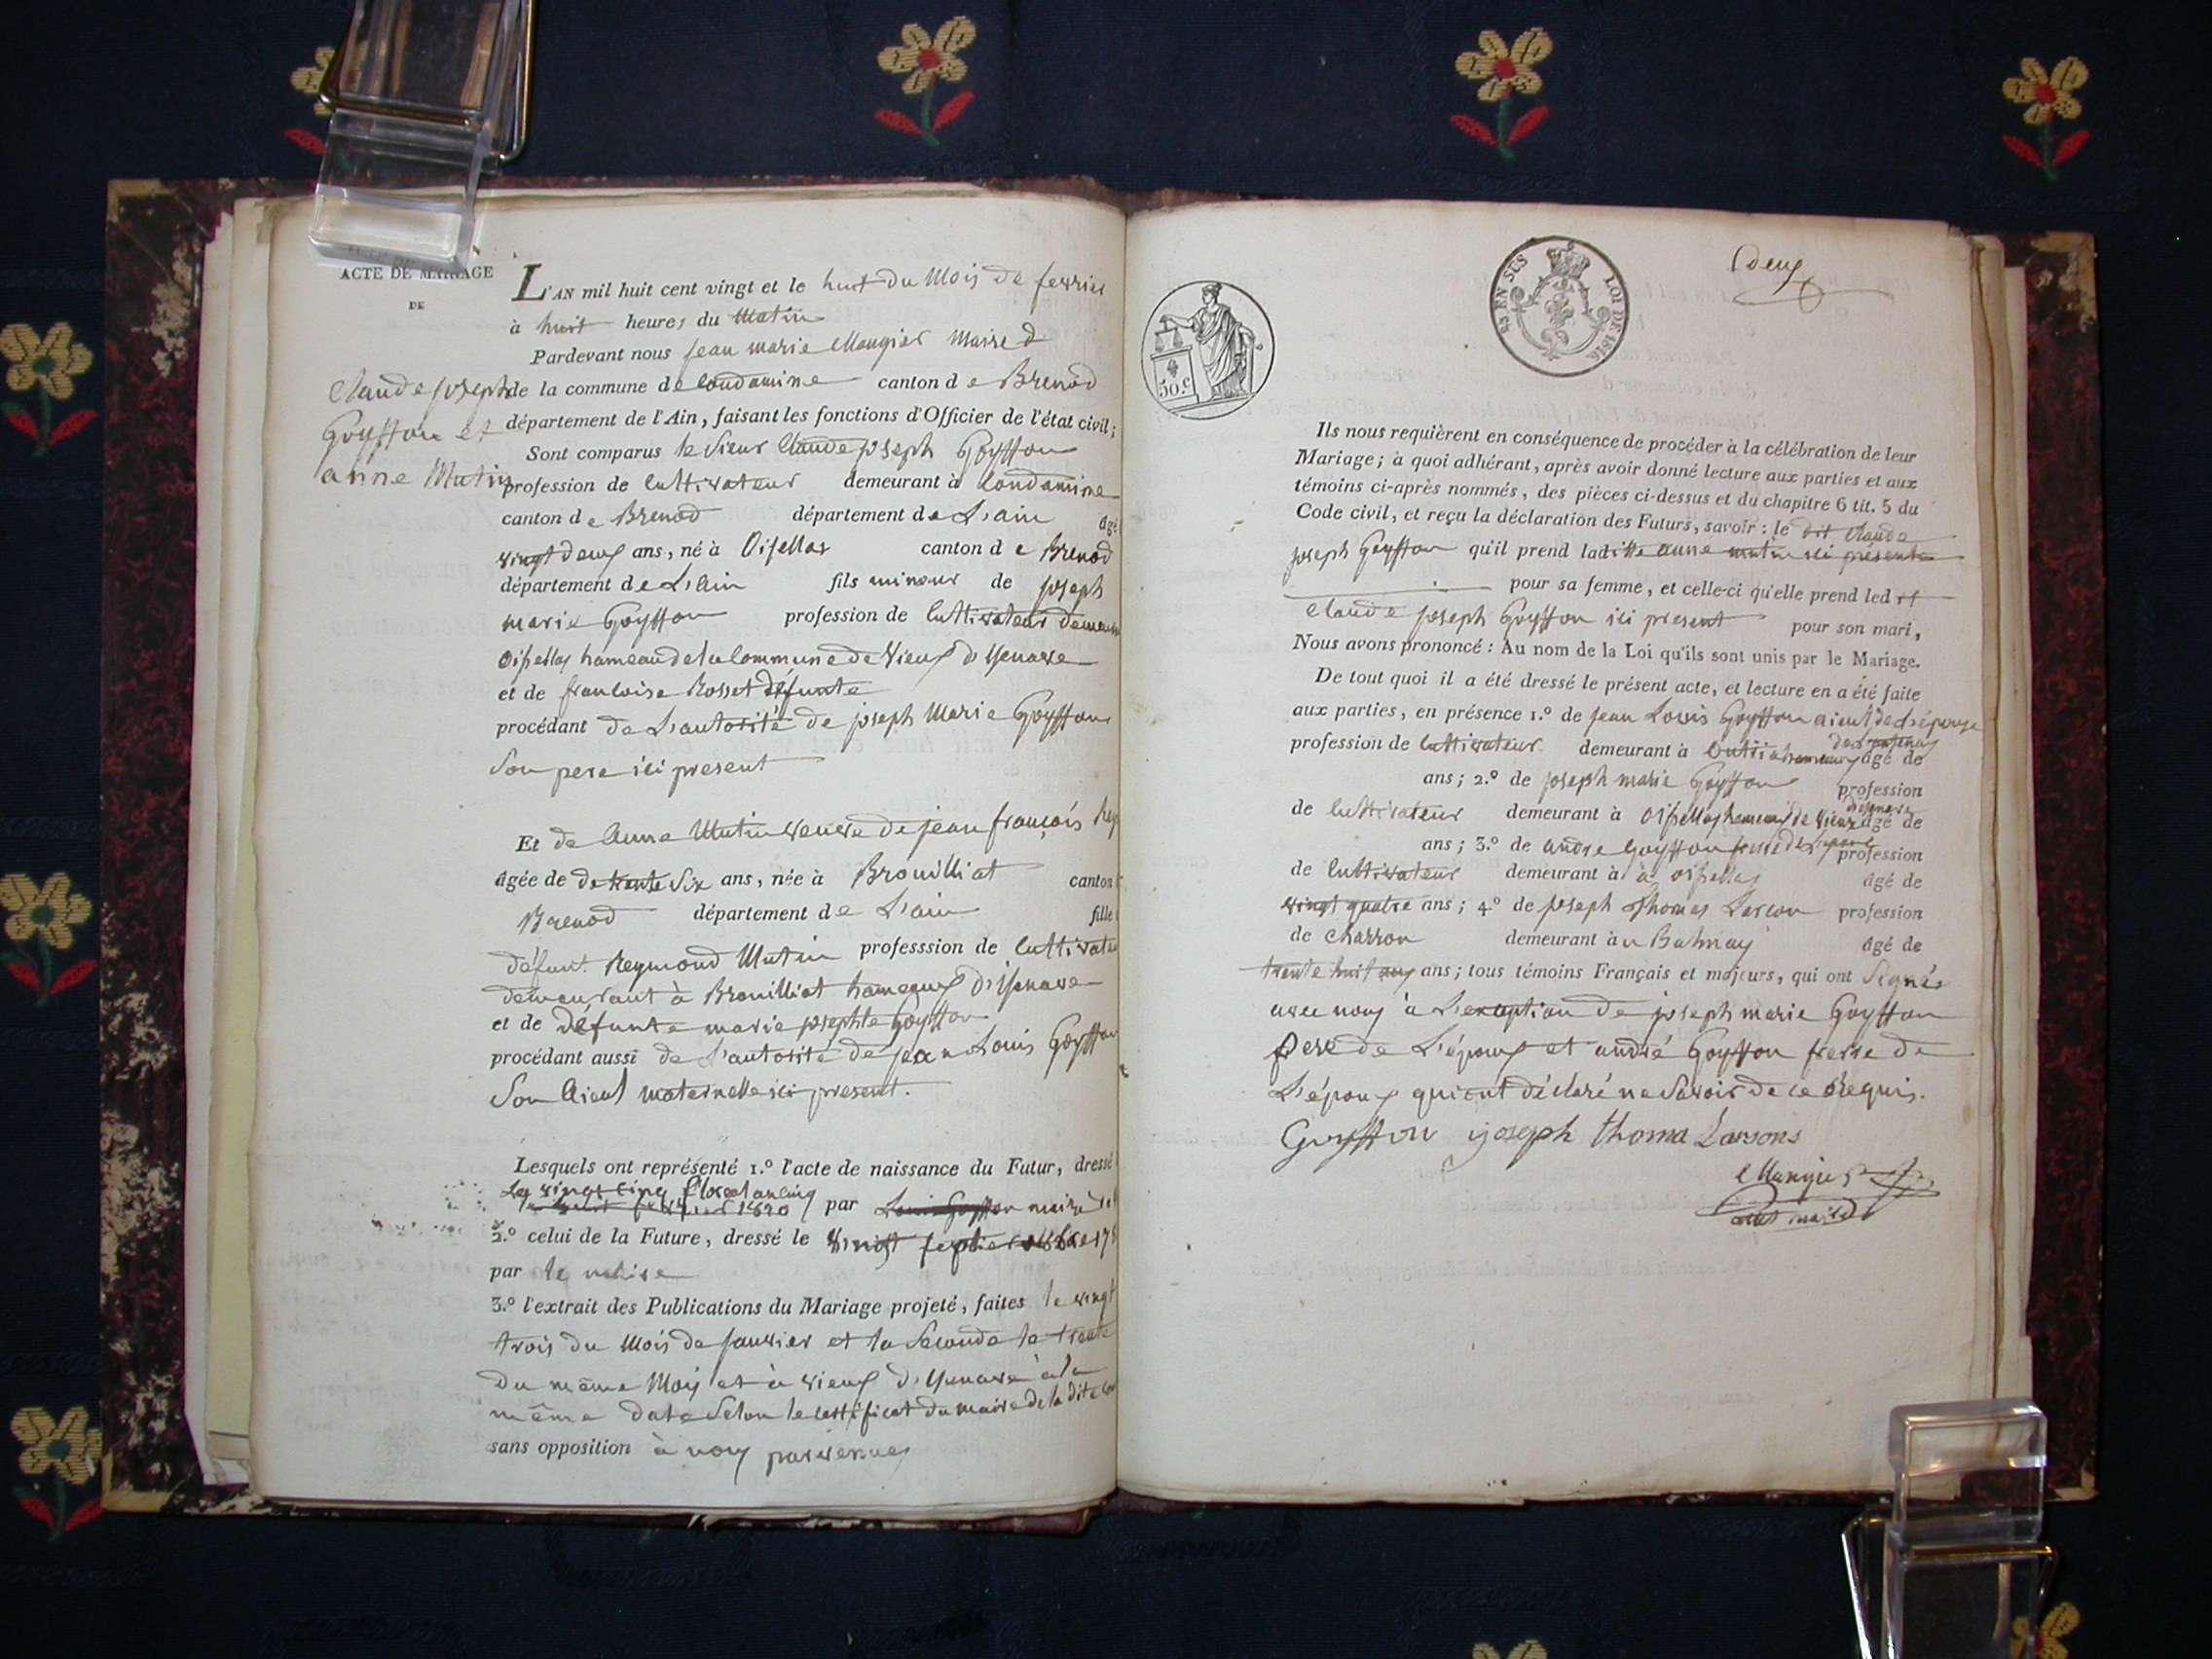 ACTE DE MARIAGE
DE
Claude joseph
Goyffon et
anne Mutin
L'AN mil huit cent vingt et le huit du Mois de fevrier
à huit heures du Matin
Pardevant nous jean marie Maugier Maire d
de la commune de Condamine canton de Brenod
département de l'Ain, faisant les fonctions d'Officier de l'état civil;
Sont comparus le Sieur Claude joseph Goyffon
profession de Cultivateur demeurant à Condamine
canton de Brenod département de L'ain âgé
vingt deux ans, né à Oisellas canton de Brenod
département de L'ain fils mineur de joseph
marie Goyffon profession de Cultivateur
hameau de la Commune de Vieux d'Yzenave
et de francoise Rosset défunte
procédant de L'autorité de joseph Marie Goyffon
Son pere ici present
Et de Anne Mutin veuve de jean françois
âgée de de trente Six ans, née à Brouilliat canton
Brenod département de L'ain fille
défunt Reymond Mutin professsion de
demeurant à Brouilliat hameaux D'Yzenave
et de défunte marie josephte Goyffon
procédant aussi de L'autorité de jean Louis Goyffon
Son Aieul maternelle ici present.
Lesquels ont représenté 1.º l'acte de naissance du Futur, dressé
Le vingt cinq floreal an cinq
par maire
2.º celui de la Future, dressé le Vingt
par le même
3.º l'extrait des Publications du Mariage projeté, faites le vingt
trois du Mois de janvier et la Seconde le trente
du même Mois et à vieux d'Yzenave à la
même date Selon le certificat du maire de la dite
sans opposition à nous parvenues
deux
50.c
EN SUS LOI DE 1816.
Ils nous requièrent en conséquence de procéder à la célébration de leur
Mariage; à quoi adhérant, après avoir donné lecture aux parties et aux
témoins ci-après nommés, des pièces ci-dessus et du chapitre 6 tit. 5 du
Code civil, et reçu la déclaration des Futurs, savoir: le dit Claude
joseph Goyffon qu'il prend laditte anne mutin ici présente
pour sa femme, et celle-ci qu'elle prend led it
Claude joseph Goyffon ici present pour son mari,
Nous avons prononcé: Au nom de la Loi qu'ils sont unis par le Mariage.
De tout quoi il a été dressé le présent acte, et lecture en a été faite
aux parties, en présence 1.º de jean Louis Goyffon aieul de L'épouse
profession de Cultivateur demeurant à hameau âgé de
ans; 2.º de joseph marie Goyffon profession
de Cultivateur demeurant à hameau de Vieux d'Yzenave âgé de
ans; 3.º de andre Goyffon frere de L'epoux profession
de Cultivateur demeurant à à Oisellas âgé de
vingt quatre ans; 4.º de joseph Thomas profession
de charron demeurant à âgé de
trente huit ans ans; tous témoins Français et majeurs, qui ont Signés
avec nous à L'exception de joseph marie Goyffon
pere de L'époux et andré Goyffon frere de
L'époux qui ont déclaré ne Savoir de ce Requis.
Goyffon joseph thoma Larsons
Maugier
maire